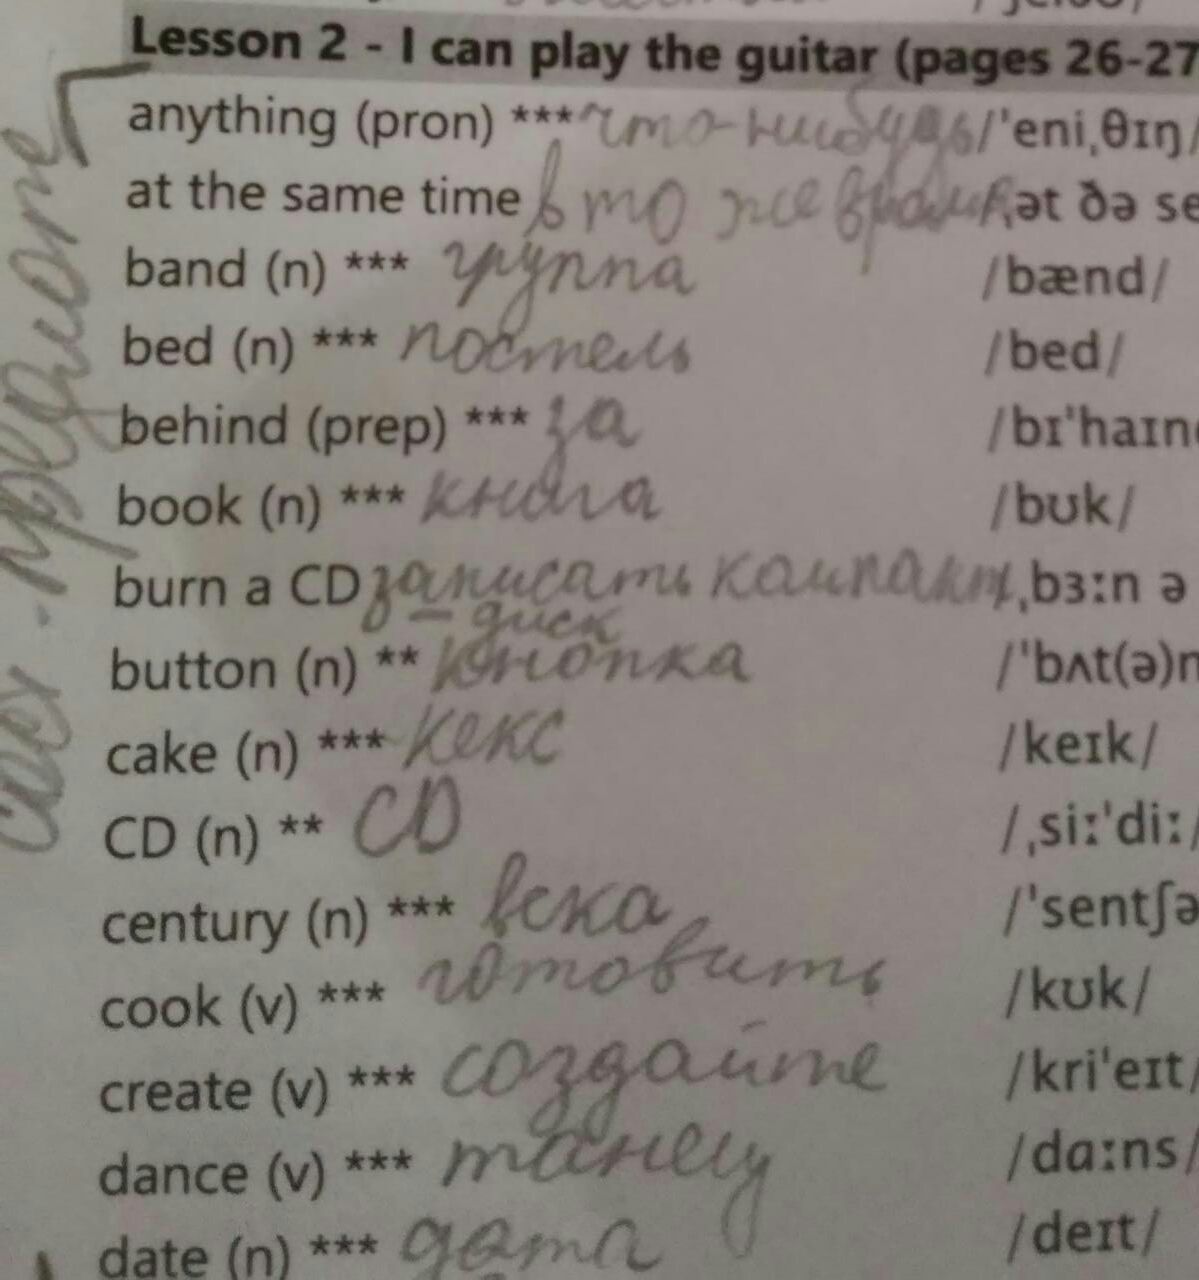 Lesson 2 - I can play the guitar (pages 26-27
anything (pron) *** что-нибудь /ˈeniˌθɪŋ/
at the same time в то же время /ˌət ðə se
band (n) *** группа /bænd/
bed (n) *** постель /bed/
behind (prep) *** за /bɪˈhaɪn
book (n) *** книга /bʊk/
burn a CD записать компакт /ˌbɜːn ə
– диск
button (n) ** кнопка /ˈbʌt(ə)n
cake (n) *** кекс /keɪk/
CD (n) ** CD /ˌsiːˈdiː/
century (n) *** века /ˈsentʃə
cook (v) *** готовить /kʊk/
create (v) *** создайте /kriˈeɪt/
dance (v) *** танец /dɑːns/
date (n) *** дата /deɪt/